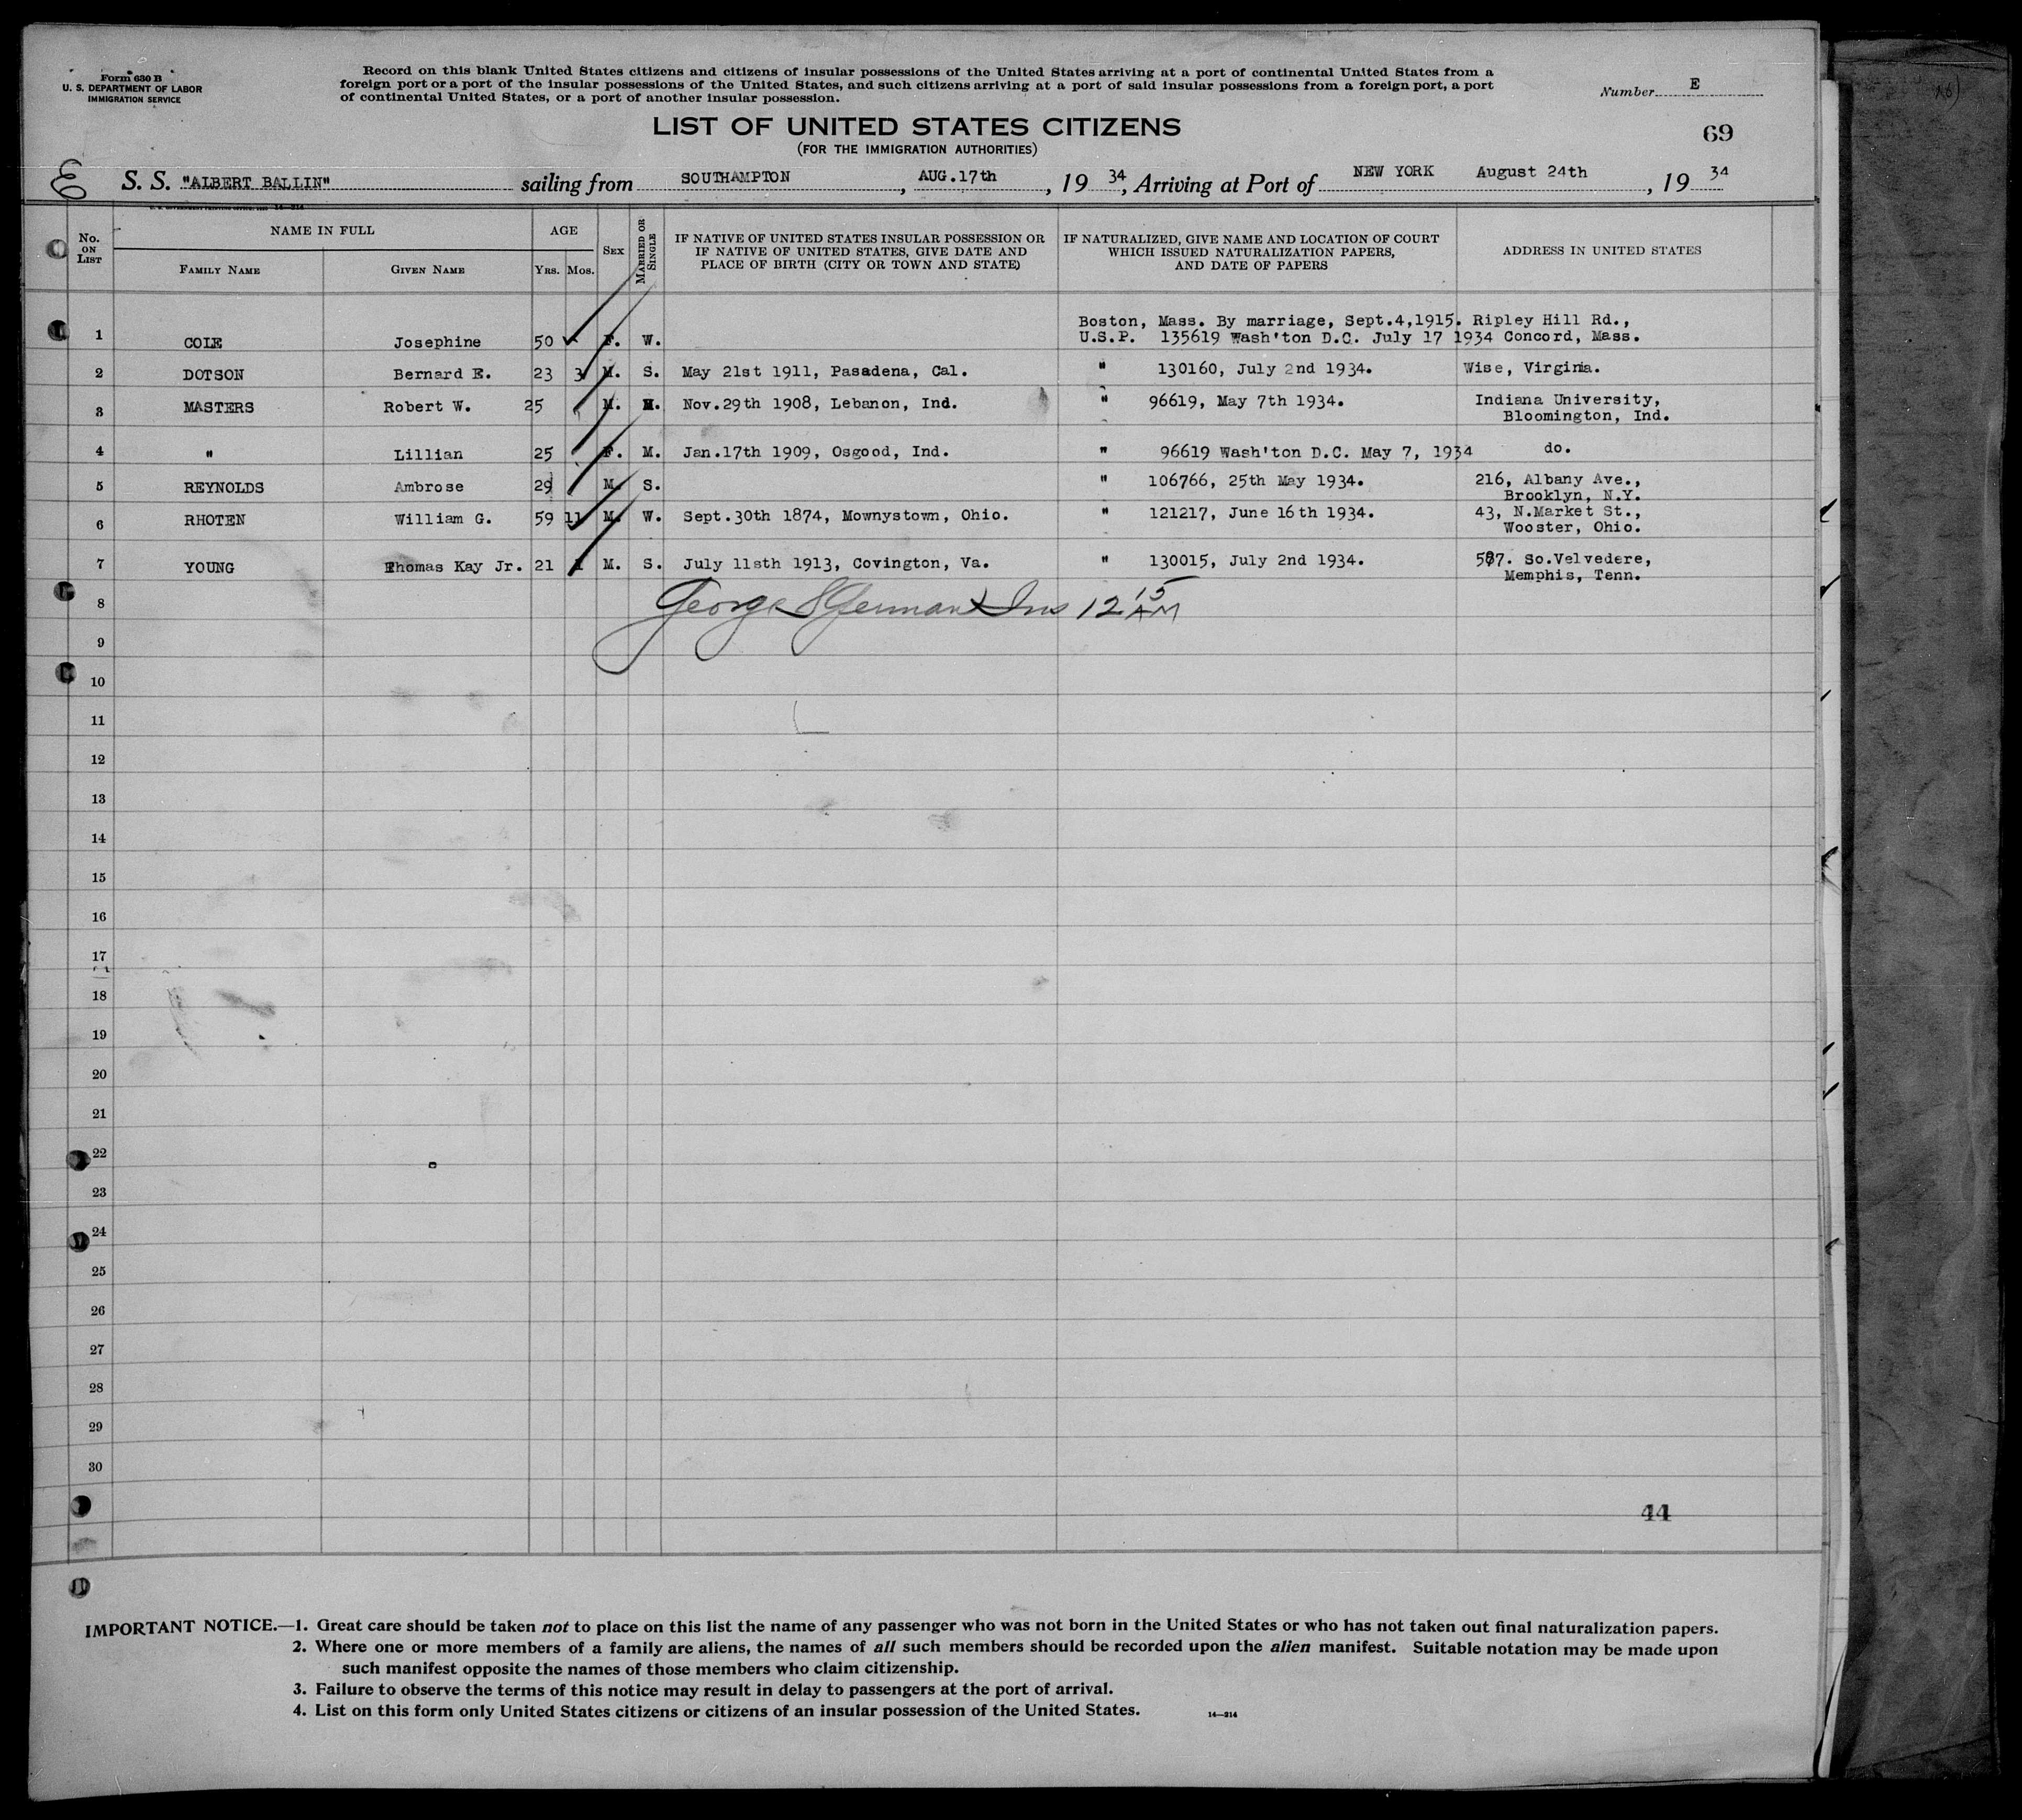 Form 630 B
U. S. DEPARTMENT OF LABOR
IMMIGRATION SERVICE
Record on this blank United States citizens and citizens of insular possessions of the United States arriving at a port of continental United States from a
foreign port or a port of the insular possessions of the United States, and such citizens arriving at a port of said insular possessions from a foreign port, a port
of continental United States, or a port of another insular possession.
Number E
LIST OF UNITED STATES CITIZENS
69
(FOR THE IMMIGRATION AUTHORITIES)
E S. S. "ALBERT BALLIN" sailing from SOUTHAMPTON, AUG.17th, 19 34, Arriving at Port of NEW YORK August 24th, 19 34
No. ON LIST
NAME IN FULL
FAMILY NAME
GIVEN NAME
AGE
YRS. MOS.
SEX
MARRIED OR SINGLE
IF NATIVE OF UNITED STATES INSULAR POSSESSION OR
IF NATIVE OF UNITED STATES, GIVE DATE AND
PLACE OF BIRTH (CITY OR TOWN AND STATE)
IF NATURALIZED, GIVE NAME AND LOCATION OF COURT
WHICH ISSUED NATURALIZATION PAPERS,
AND DATE OF PAPERS
ADDRESS IN UNITED STATES
Boston, Mass. By marriage, Sept.4,1915. Ripley Hill Rd.,
1 COLE Josephine 50 F. W. U.S.P. 135619 Wash'ton D.C. July 17 1934 Concord, Mass.
2 DOTSON Bernard E. 23 3 M. S. May 21st 1911, Pasadena, Cal. " 130160, July 2nd 1934. Wise, Virginia.
3 MASTERS Robert W. 25 M. M. Nov.29th 1908, Lebanon, Ind. " 96619, May 7th 1934. Indiana University,
Bloomington, Ind.
4 " Lillian 25 F. M. Jan.17th 1909, Osgood, Ind. " 96619 Wash'ton D.C. May 7, 1934 do.
5 REYNOLDS Ambrose 29 M. S. " 106766, 25th May 1934. 216, Albany Ave.,
Brooklyn, N.Y.
6 RHOTEN William G. 59 11 M. W. Sept.30th 1874, Mownystown, Ohio. " 121217, June 16th 1934. 43, N.Market St.,
Wooster, Ohio.
7 YOUNG Thomas Kay Jr. 21 1 M. S. July 11sth 1913, Covington, Va. " 130015, July 2nd 1934. So.Velvedere,
Memphis, Tenn.
8 George Ins 12 15 AM
9
10
11
12
13
14
15
16
17
18
19
20
21
22
23
24
25
26
27
28
29
30
44
IMPORTANT NOTICE.—1. Great care should be taken not to place on this list the name of any passenger who was not born in the United States or who has not taken out final naturalization papers.
2. Where one or more members of a family are aliens, the names of all such members should be recorded upon the alien manifest. Suitable notation may be made upon
such manifest opposite the names of those members who claim citizenship.
3. Failure to observe the terms of this notice may result in delay to passengers at the port of arrival.
4. List on this form only United States citizens or citizens of an insular possession of the United States.
14—214